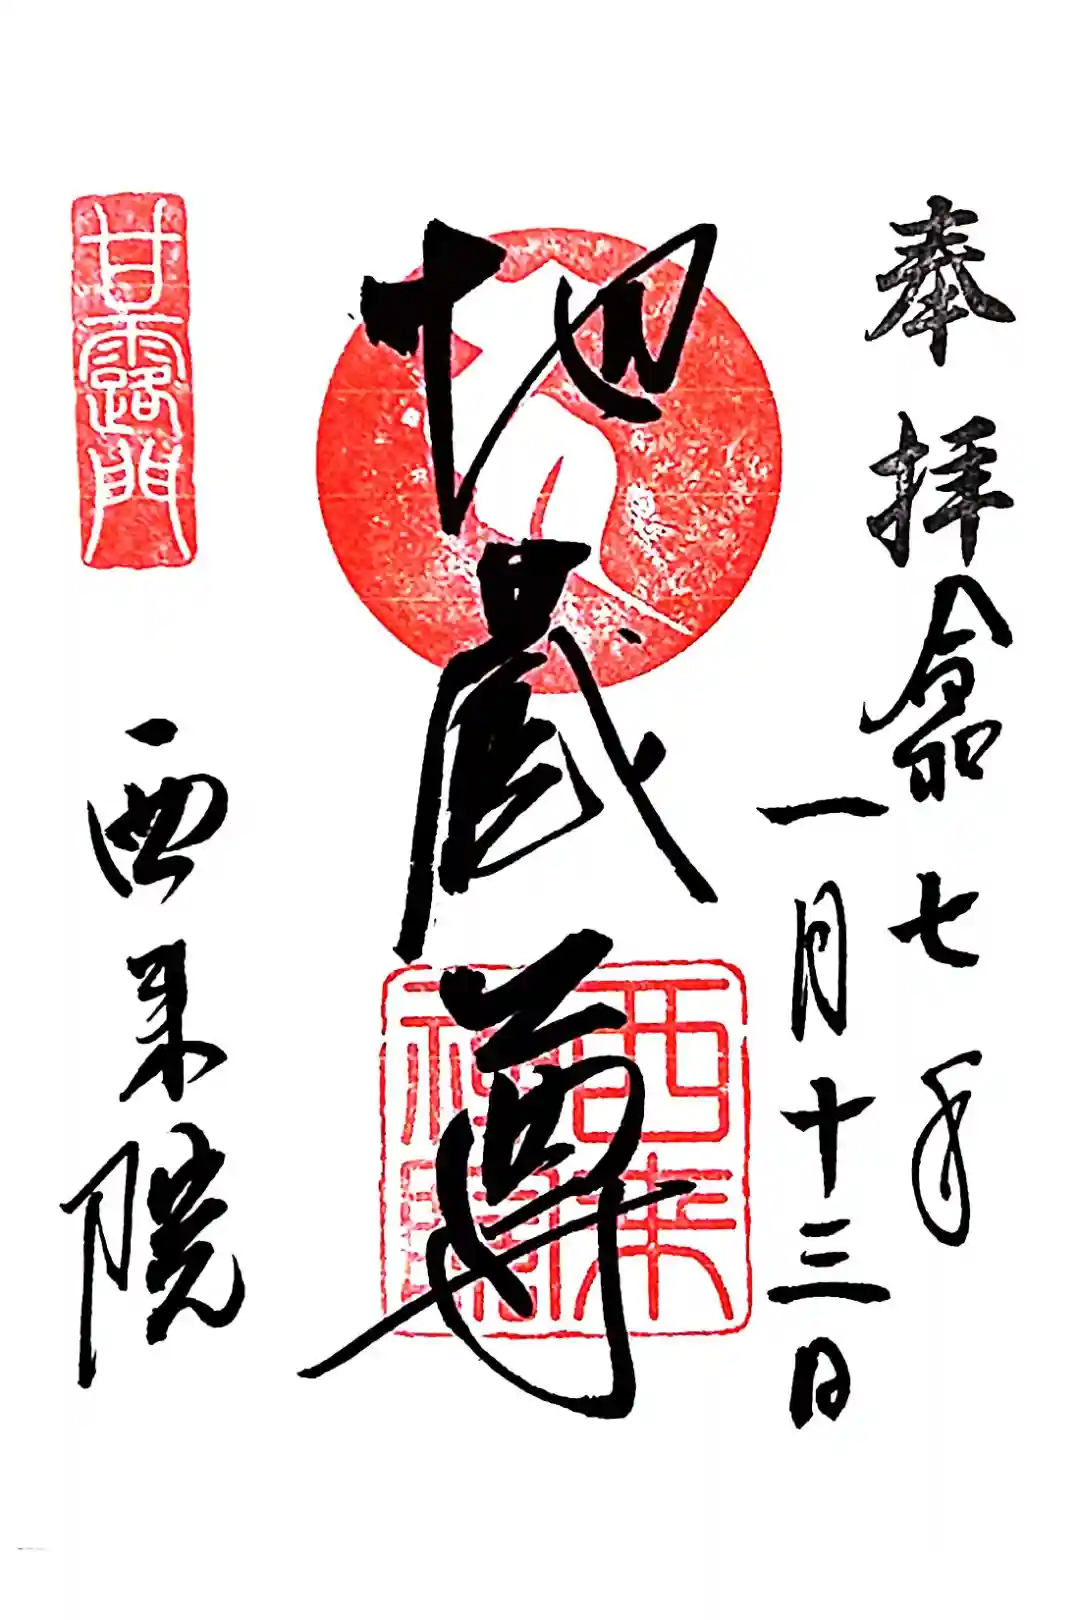 奉拝 令和七年
一月十三日
地蔵尊
西来禅院
甘露門
西来院